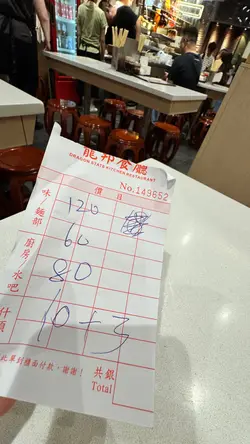 龍邦餐廳
DRAGON STATE KITCHEN RESTAURANT
No.149852
價目
味
麵部
120
60
廚房
80
水吧
10+3
什項
此單到櫃面付款,謝謝!
共銀
Total